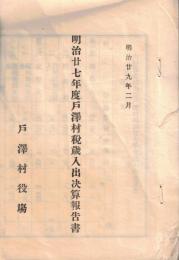 明治廿九年二月
明治廿七年度戸澤村税歳入出決算報告書
戸澤村役場